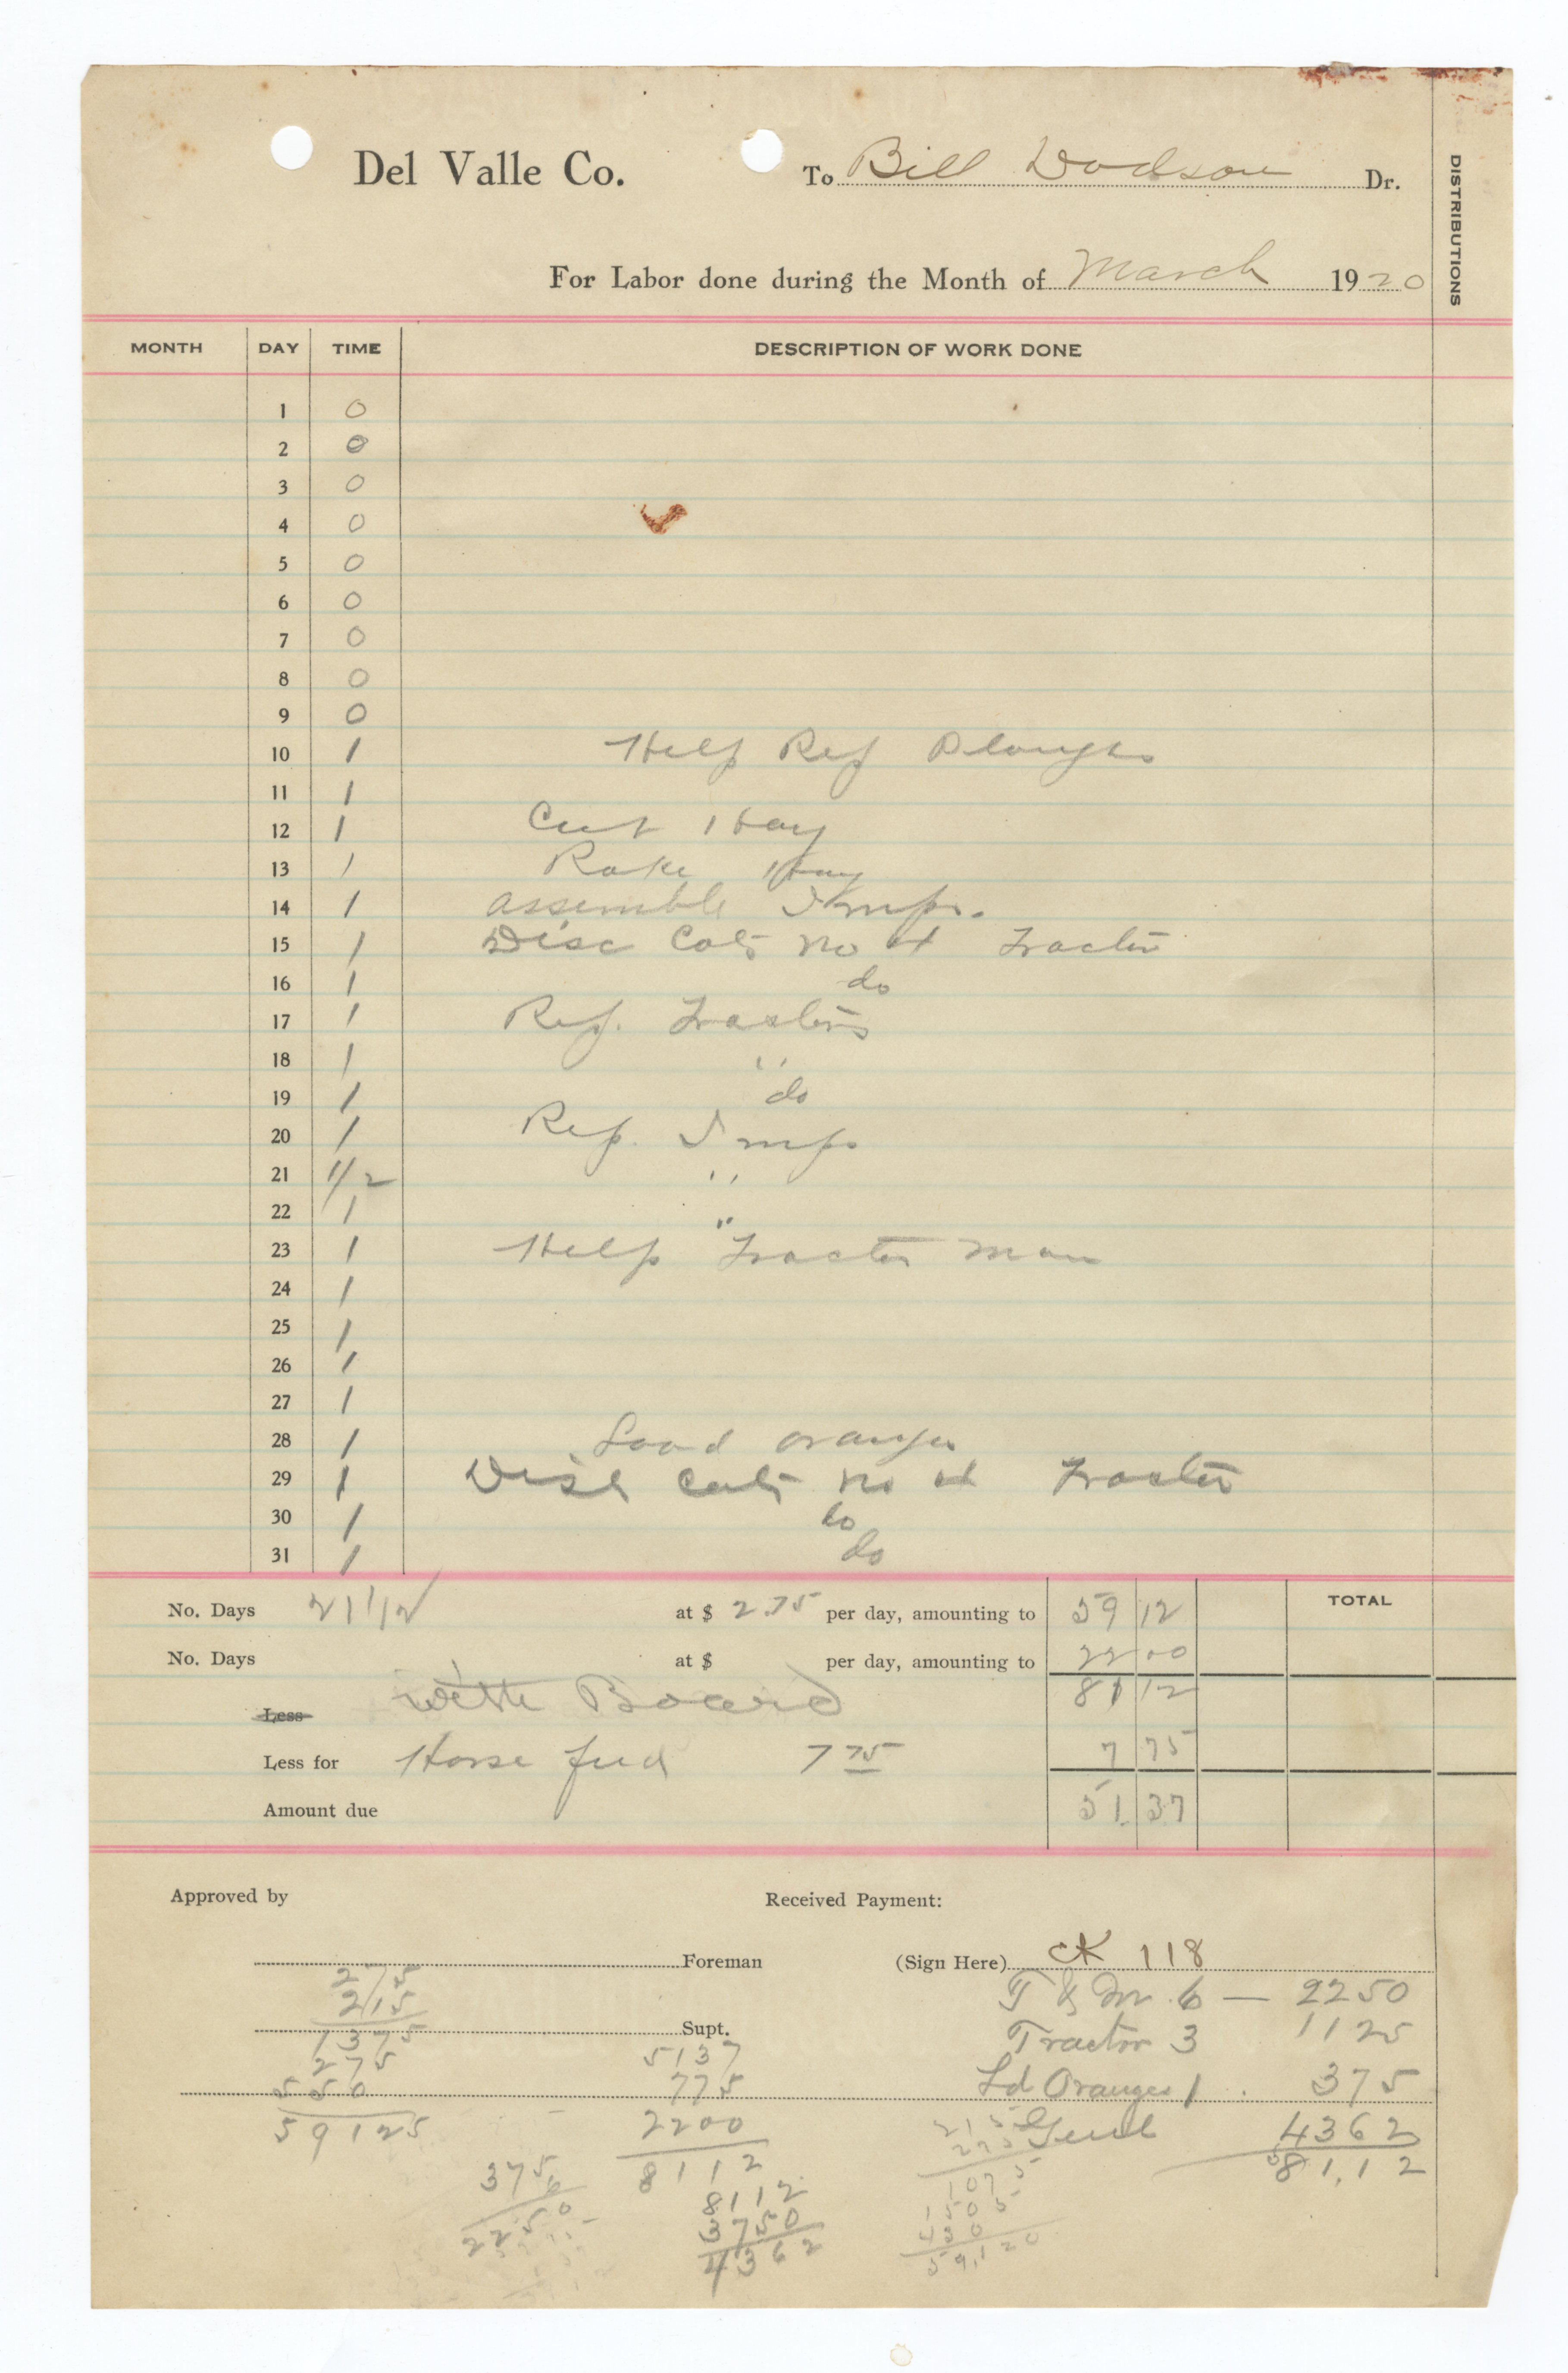 Del Valle Co. To Bill Dodson Dr.
DISTRIBUTIONS
For Labor done during the Month of March 1920
MONTH DAY TIME DESCRIPTION OF WORK DONE
1 0
2 0
3 0
4 0
5 0
6 0
7 0
8 0
9 0
10 1 Help Rep Ploughs
11 1
12 1 Cut Hay
13 1 Rake Hay
14 1 Assemble Imps.
15 1 Disc Cats No 4 Tractor
16 1 do
17 1 Rep. Tractors
18 1 "
19 1 do
20 1 Rep. Imps
21 1/2 "
22 1 "
23 1 Help Tractor Man
24 1
25 1
26 1
27 1
28 1 Load oranges
29 1 Disk Cats No 4 Tractor
30 1 do
31 1 do
No. Days 21 1/2 at $ 2.75 per day, amounting to 59 12 TOTAL
No. Days at $ per day, amounting to 22 00
Less with Board 81 12
Less for Horse feed 7 75 7 75
Amount due 51 37
Approved by Received Payment:
Foreman (Sign Here) CK 118
275
215
T & M 6 — 2250
Supt.
1375
275
550
59125
Tractor 3 1125
5137
775
2200
8112
Ld Oranges 1 375
Genl 4362
81.12
375
6
2250
8112
3750
4362
215
275
1075
1505
430
59,120